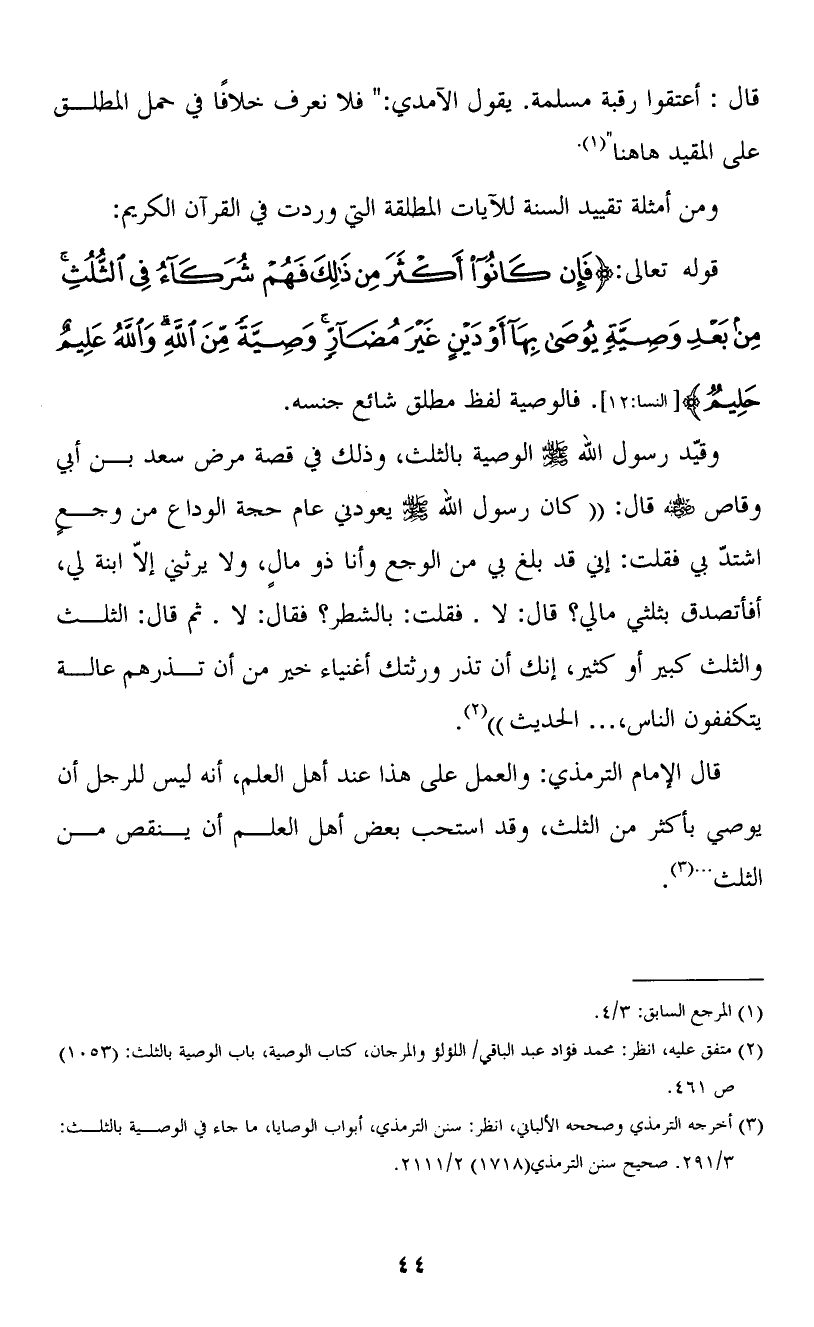 قال : أعتقوا رقبة مسلمة. يقول الآمدي:" فلا نعرف خلافًا في حمل المطلــق
على المقيد هاهنا"(١).
ومن أمثلة تقييد السنة للآيات المطلقة التي وردت في القرآن الكريم:
قوله تعالى:﴿فَإِن كَانُوٓا۟ أَكْثَرَ مِن ذَٰلِكَ فَهُمْ شُرَكَآءُ فِى ٱلثُّلُثِ ۚ
مِنۢ بَعْدِ وَصِيَّةٍ يُوصَىٰ بِهَآ أَوْ دَيْنٍ غَيْرَ مُضَآرٍّ ۚ وَصِيَّةً مِّنَ ٱللَّهِ ۗ وَٱللَّهُ عَلِيمٌ
حَلِيمٌ﴾[النسا:١٢]. فالوصية لفظ مطلق شائع جنسه.
وقيّد رسول الله ﷺ الوصية بالثلث، وذلك في قصة مرض سعد بــن أبي
وقاص رضي الله عنه قال: (( كان رسول الله ﷺ يعودني عام حجة الوداع من وجــعٍ
اشتدّ بي فقلت: إني قد بلغ بي من الوجع وأنا ذو مالٍ، ولا يرثني إلاّ ابنة لي،
أفأتصدق بثلثي مالي؟ قال: لا . فقلت: بالشطر؟ فقال: لا . ثم قال: الثلــث
والثلث كبير أو كثير، إنك أن تذر ورثتك أغنياء خير من أن تــذرهم عالــة
يتكففون الناس،... الحديث ))(٢).
قال الإمام الترمذي: والعمل على هذا عند أهل العلم، أنه ليس للرجل أن
يوصي بأكثر من الثلث، وقد استحب بعض أهل العلــم أن يــنقص مــن
الثلث...(٣).
(١) المرجع السابق: ٤/٣.
(٢) متفق عليه، انظر: محمد فؤاد عبد الباقي/ اللؤلؤ والمرجان، كتاب الوصية، باب الوصية بالثلث: (١٠٥٣)
ص ٤٦١.
(٣) أخرجه الترمذي وصححه الألباني، انظر: سنن الترمذي، أبواب الوصايا، ما جاء في الوصــية بالثلــث:
٢٩١/٣. صحيح سنن الترمذي(١٧١٨) ٢١١١/٢.
٤٤